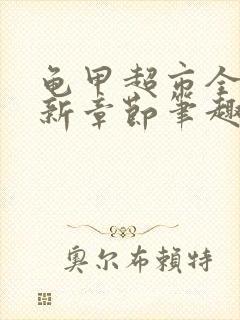 龟甲超市全
新章节笔趣
奥尔布赖特